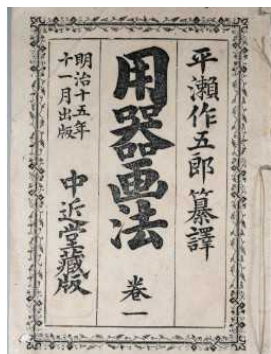 平瀬作五郎纂譯
用器画法
卷一
明治十五年
十一月出版
中近堂蔵版